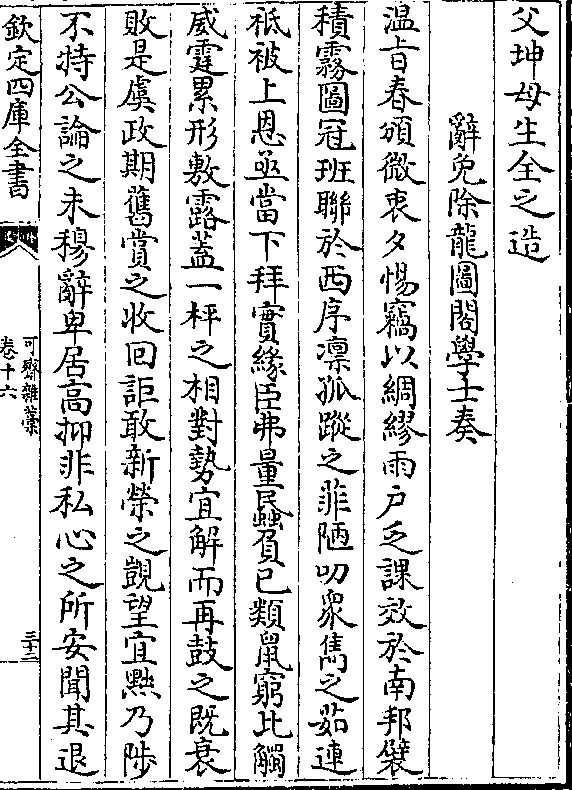 父坤母生全之造
辭免除龍圖閣學士奏
温㫖春頒微衷夕惕竊以綢繆雨户乏課效於南邦襞
積霧圖冠班聯於西序凛孤蹤之菲陋叨衆雋之茹連
祗被上恩亟當下拜實緣臣弗量蟁負已類鼠窮比觸
威霆累形敷露蓋一枰之相對勢宜解而再鼓之既衰
敗是虞政期舊賞之收回詎敢新榮之覬望宜黜乃陟
不持公論之未穆辭卑居高抑非私心之所安聞其退
欽定四庫全書
可齋雜藁
卷十六
三十二